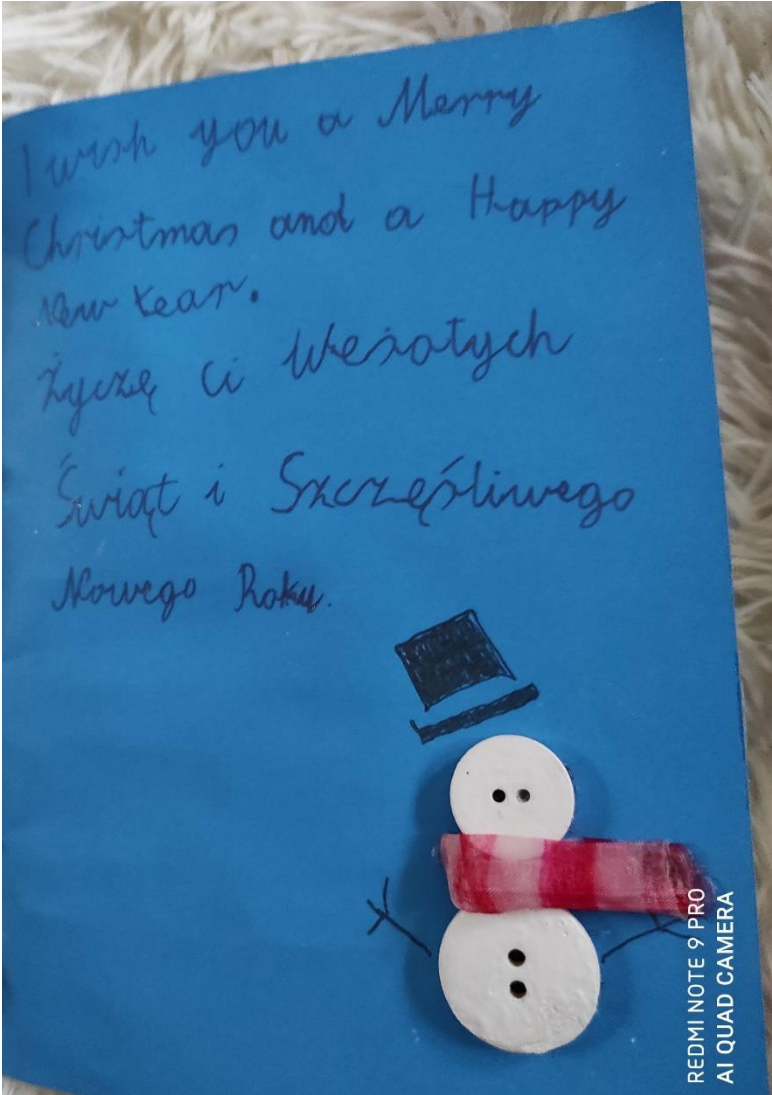 I wish you a Merry
Christmas and a Happy
New Year.
Życzę ci Wesołych
Świąt i Szczęśliwego
Nowego Roku.
REDMI NOTE 9 PRO
AI QUAD CAMERA